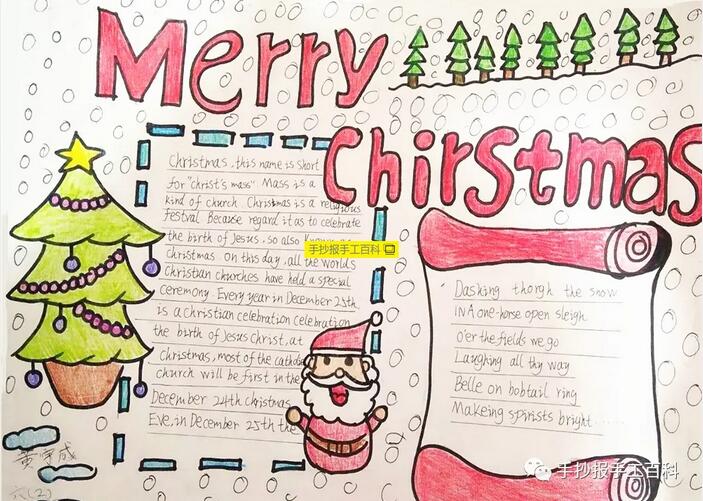 Merry
Chirstmas
Christmas, this name is short
for "christ's mass" Mass is a
kind of church. Christmas is a religious
Festval. Because regard it as to celebrate
the birth of Jesus, so also known as
Christmas. On this day, all the worlds
Christian churches have held a special
ceremony. Every year in December 25th
is a christian celebration celebration
the birth of Jesus Christ, at
Christmas, most of the
church will be first in the
December 24th christmas
Eve, in December 25th the
手抄报手工百科
Dasking thorgh the snow
IN A one-horse open sleigh
O'er the fields we go
Laughing all thy way
Belle on bobtail ring
Makeing spirists bright......
六(2)
手抄报手工百科